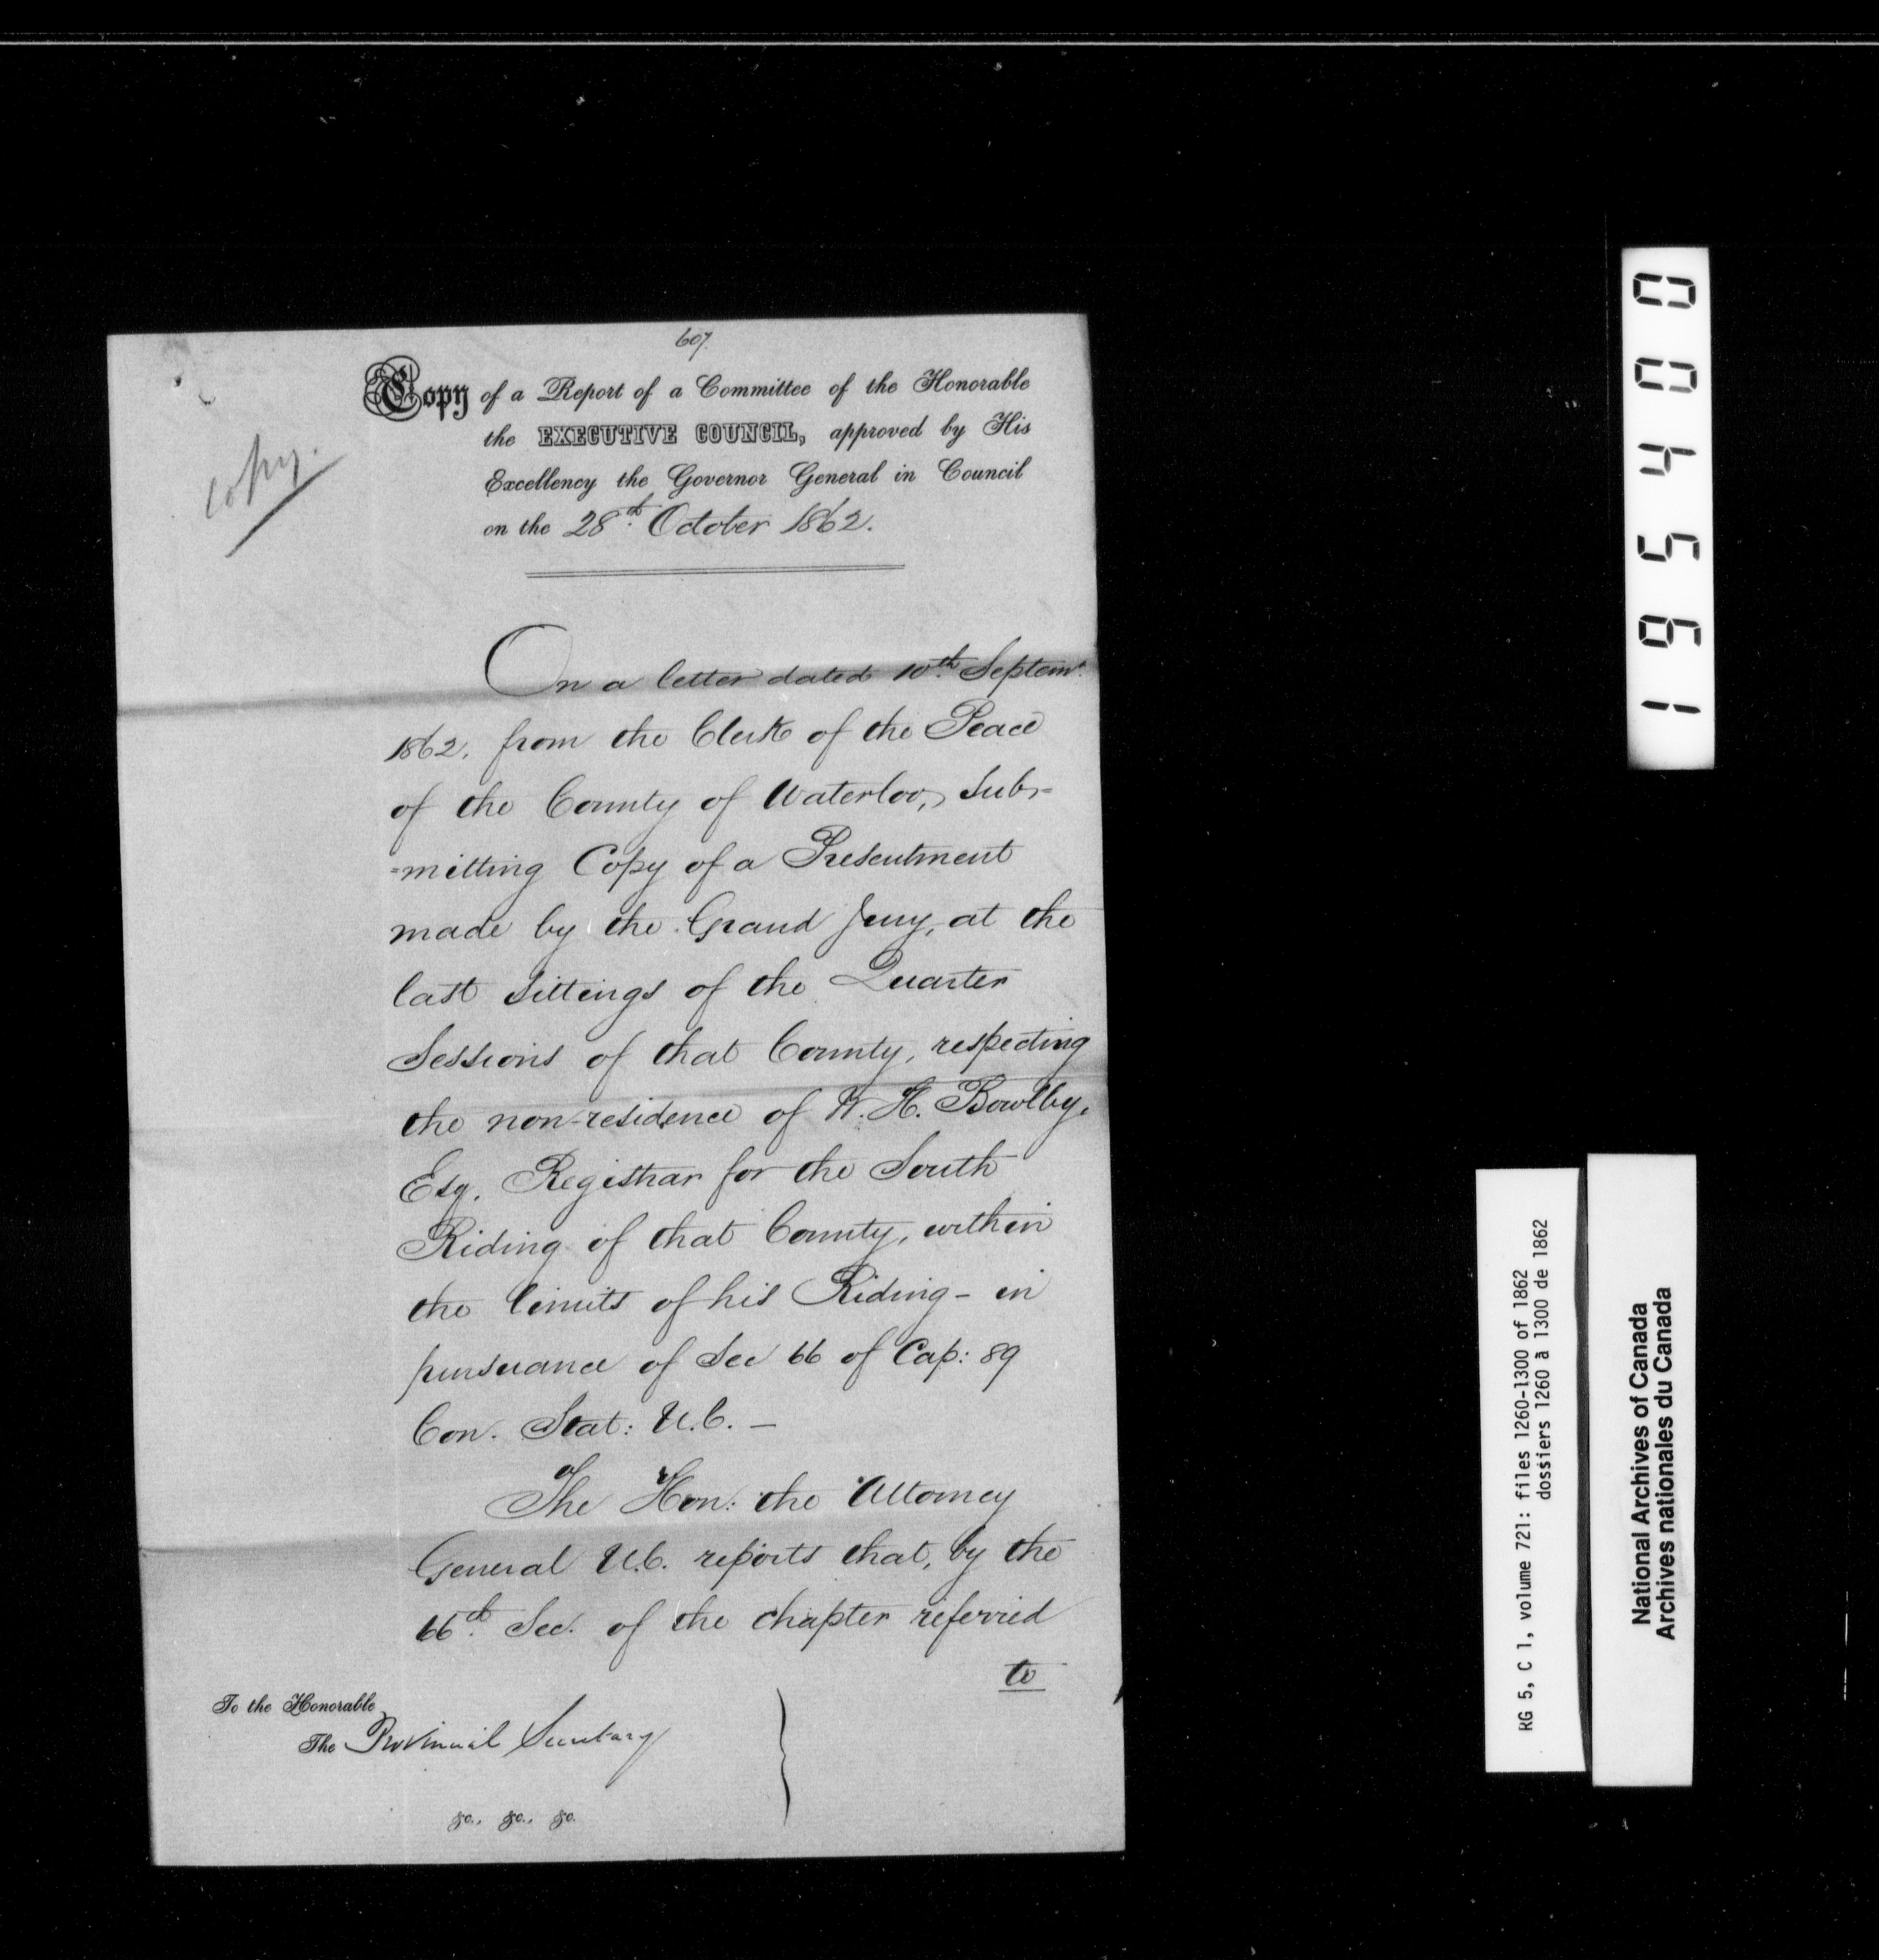 607.
Copy of a Report of a Committee of the Honorable
the EXECUTIVE COUNCIL, approved by His
Excellency the Governor General in Council
on the 28th October 1862.
copy.
On a letter dated 10th Septemr.
1862, from the Clerk of the Peace
of the County of Waterloo, sub=
=mitting Copy of a Presentment
made by the Grand Jury, at the
last sittings of the Quarter
Sessions of that County, respecting
the non-residence of W. H. Bowlby,
Esq. Registrar for the South
Riding of that County, within
the limits of his Riding - in
pursuance of Sec 66 of Cap: 89
Con. Stat: U.C. —
The Hon: the Attorney
General U.C. reports that, by the
66th Sec. of the chapter referred
to
To the Honorable
The Provincial Secretary
&c., &c., &c.
195400
RG 5, C 1, volume 721: files 1260-1300 of 1862
dossiers 1260 à 1300 de 1862
National Archives of Canada
Archives nationales du Canada